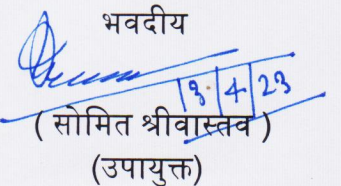 भवदीय
13/4/23
( सोमित श्रीवास्तव )
(उपायुक्त)